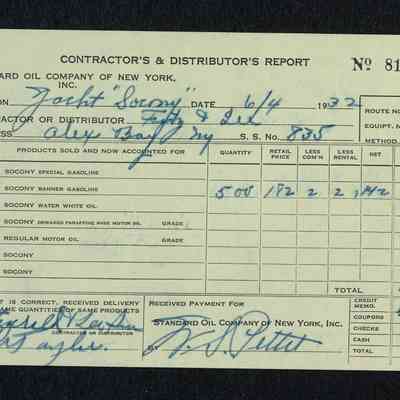 CONTRACTOR'S & DISTRIBUTOR'S REPORT
Nº 81
ARD OIL COMPANY OF NEW YORK,
INC.
ON Yacht "Socony" DATE 6/4 1932
ROUTE NO
CTOR OR DISTRIBUTOR Fitz & Lee
EQUIPT. N
ESS Alex Bay NY S. S. No. 835
AMOUNT
PRODUCTS SOLD AND NOW ACCOUNTED FOR QUANTITY RETAIL PRICE LESS COM'N LESS TAX NET
SOCONY SPECIAL GASOLINE
SOCONY BANNER GASOLINE 500 182 2 2 142
SOCONY WATER WHITE OIL
SOCONY DEWAXED PARAFFINE BASE MOTOR OIL GRADE
REGULAR MOTOR OIL GRADE
SOCONY
SOCONY
TOTAL
T IS CORRECT, RECEIVED DELIVERY
AME QUANTITIES OF SAME PRODUCTS
RECEIVED PAYMENT FOR
STANDARD OIL COMPANY OF NEW YORK, INC.
CREDIT MEMO.
COUPONS
CHECKS
CASH
TOTAL
CONTRACTOR OR DISTRIBUTOR
BY